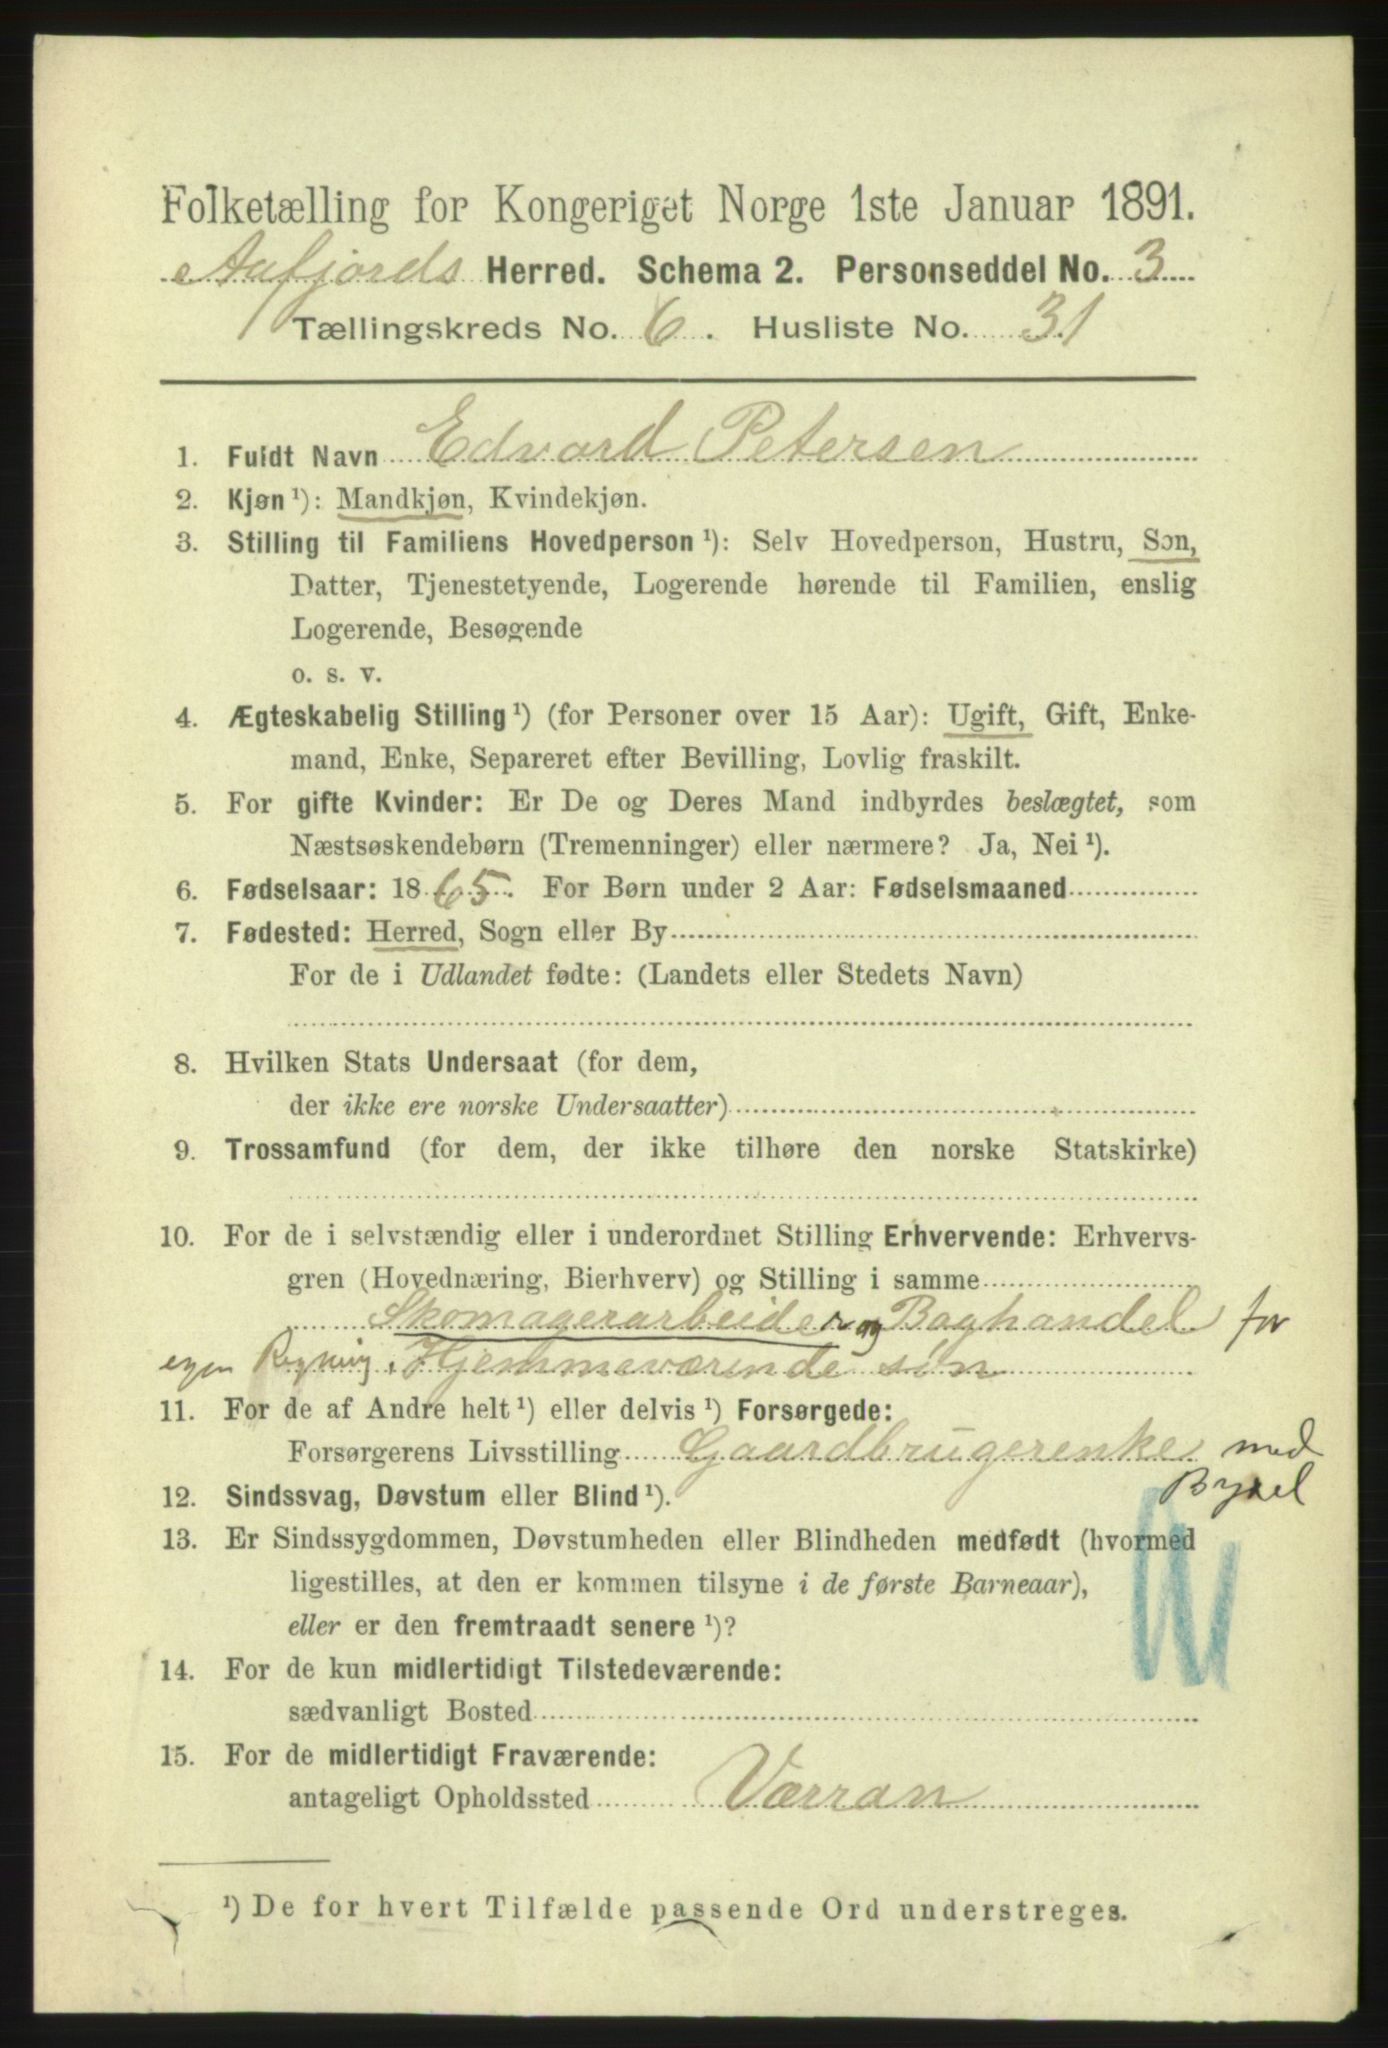 Folketælling for Kongeriget Norge 1ste Januar 1891.
Aafjords Herred. Schema 2. Personseddel No. 3
Tællingskreds No. 6. Husliste No. 31
1. Fuldt Navn Edvard Petersen
2. Kjøn ¹): Mandkjøn, Kvindekjøn.
3. Stilling til Familiens Hovedperson ¹): Selv Hovedperson, Hustru, Søn,
Datter, Tjenestetyende, Logerende hørende til Familien, enslig
Logerende, Besøgende
o. s. v.
4. Ægteskabelig Stilling ¹) (for Personer over 15 Aar): Ugift, Gift, Enke-
mand, Enke, Separeret efter Bevilling, Lovlig fraskilt.
5. For gifte Kvinder: Er De og Deres Mand indbyrdes beslægtet, som
Næstsøskendebørn (Tremenninger) eller nærmere? Ja, Nei ¹).
6. Fødselsaar: 1865. For Børn under 2 Aar: Fødselsmaaned
7. Fødested: Herred, Sogn eller By
For de i Udlandet fødte: (Landets eller Stedets Navn)
8. Hvilken Stats Undersaat (for dem,
der ikke ere norske Undersaatter)
9. Trossamfund (for dem, der ikke tilhøre den norske Statskirke)
10. For de i selvstændig eller i underordnet Stilling Erhvervende: Erhvervs-
gren (Hovednæring, Bierhverv) og Stilling i samme
Skomagerarbeider og Boghandel for
egen Regning. Hjemmeværende søn
11. For de af Andre helt ¹) eller delvis ¹) Forsørgede:
Forsørgerens Livsstilling Gaardbrugerenke med
Bygsel
12. Sindssvag, Døvstum eller Blind ¹).
13. Er Sindssygdommen, Døvstumheden eller Blindheden medfødt (hvormed
ligestilles, at den er kommen tilsyne i de første Barneaar),
eller er den fremtraadt senere ¹)?
14. For de kun midlertidigt Tilstedeværende:
sædvanligt Bosted
15. For de midlertidigt Fraværende:
antageligt Opholdssted Værran
¹) De for hvert Tilfælde passende Ord understreges.